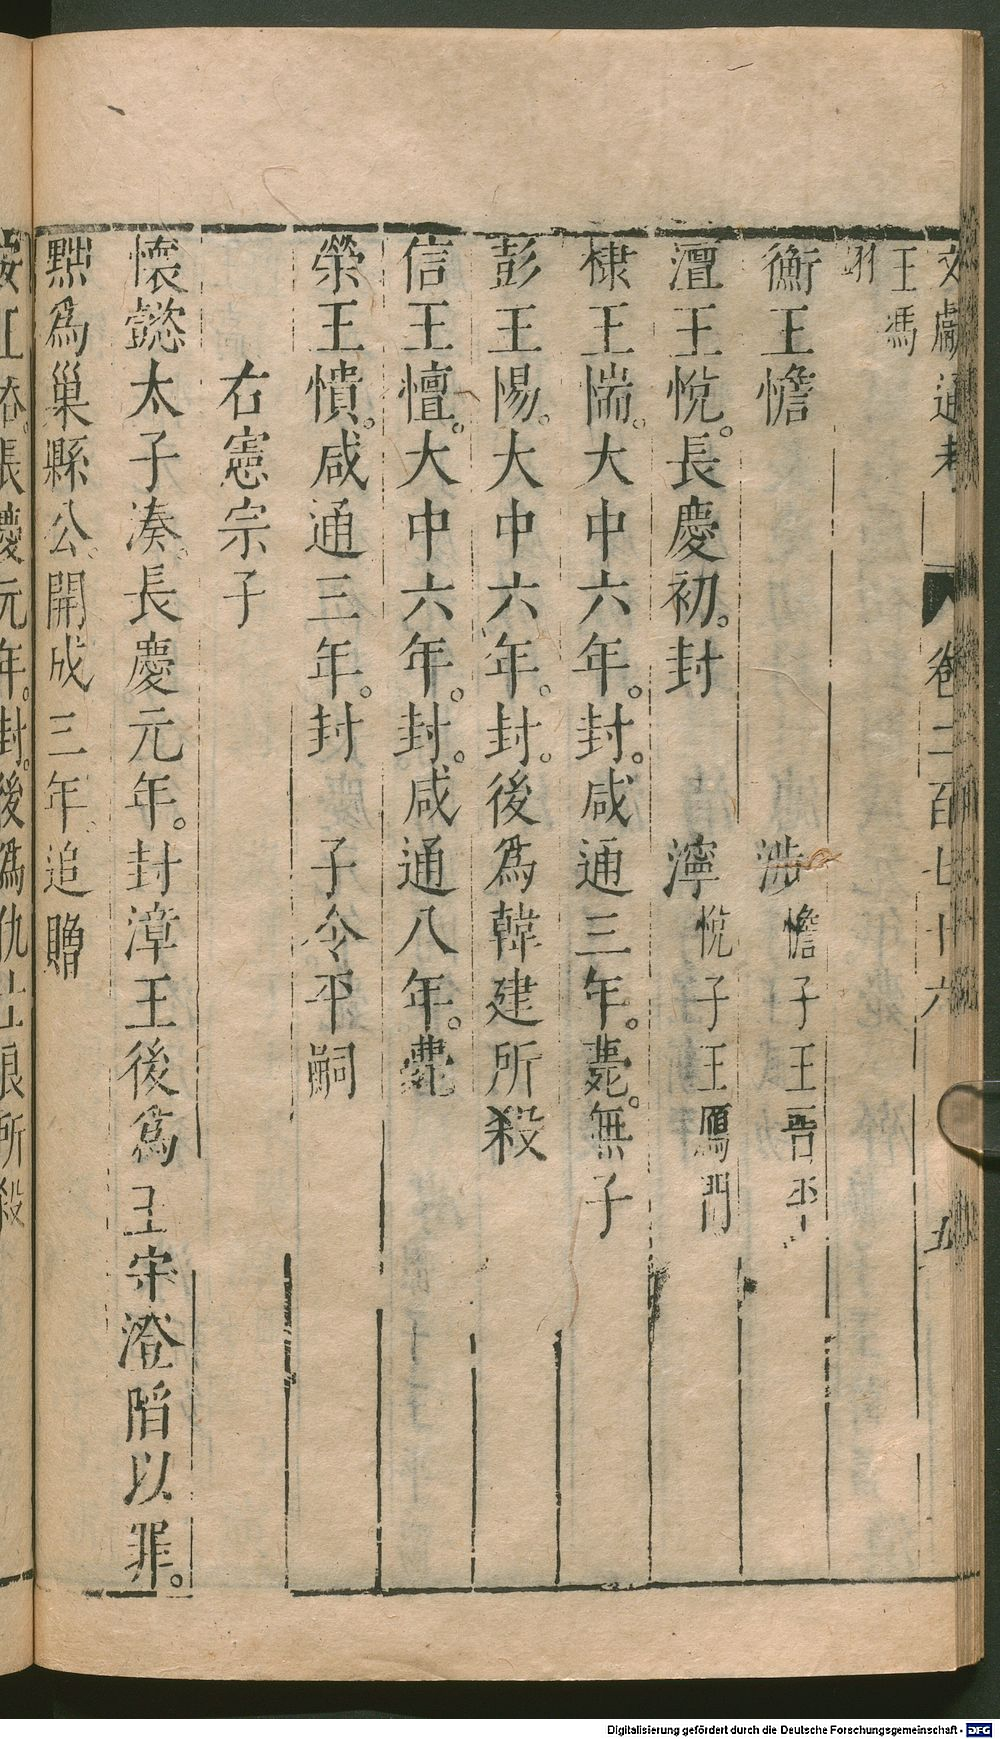 文獻通考 卷二百七十六 五
王馮
翊
衡王憺 涉憺子王晉平
澶王悅。長慶初。封 濘悅子王鴈門
棣王惴。大中六年。封。咸通三年。薨。無子
彭王惕。大中六年。封。後爲韓建所殺
信王憻。大中六年。封。咸通八年。薨
榮王憒。咸通三年。封 子令平嗣
右憲宗子
懷懿太子湊。長慶元年。封漳王後爲王守澄陷以罪。
黜爲巢縣公。開成三年。追贈
安王溶。長慶元年。封。後爲仇士良所殺
Digitalisierung gefördert durch die Deutsche Forschungsgemeinschaft - DFG